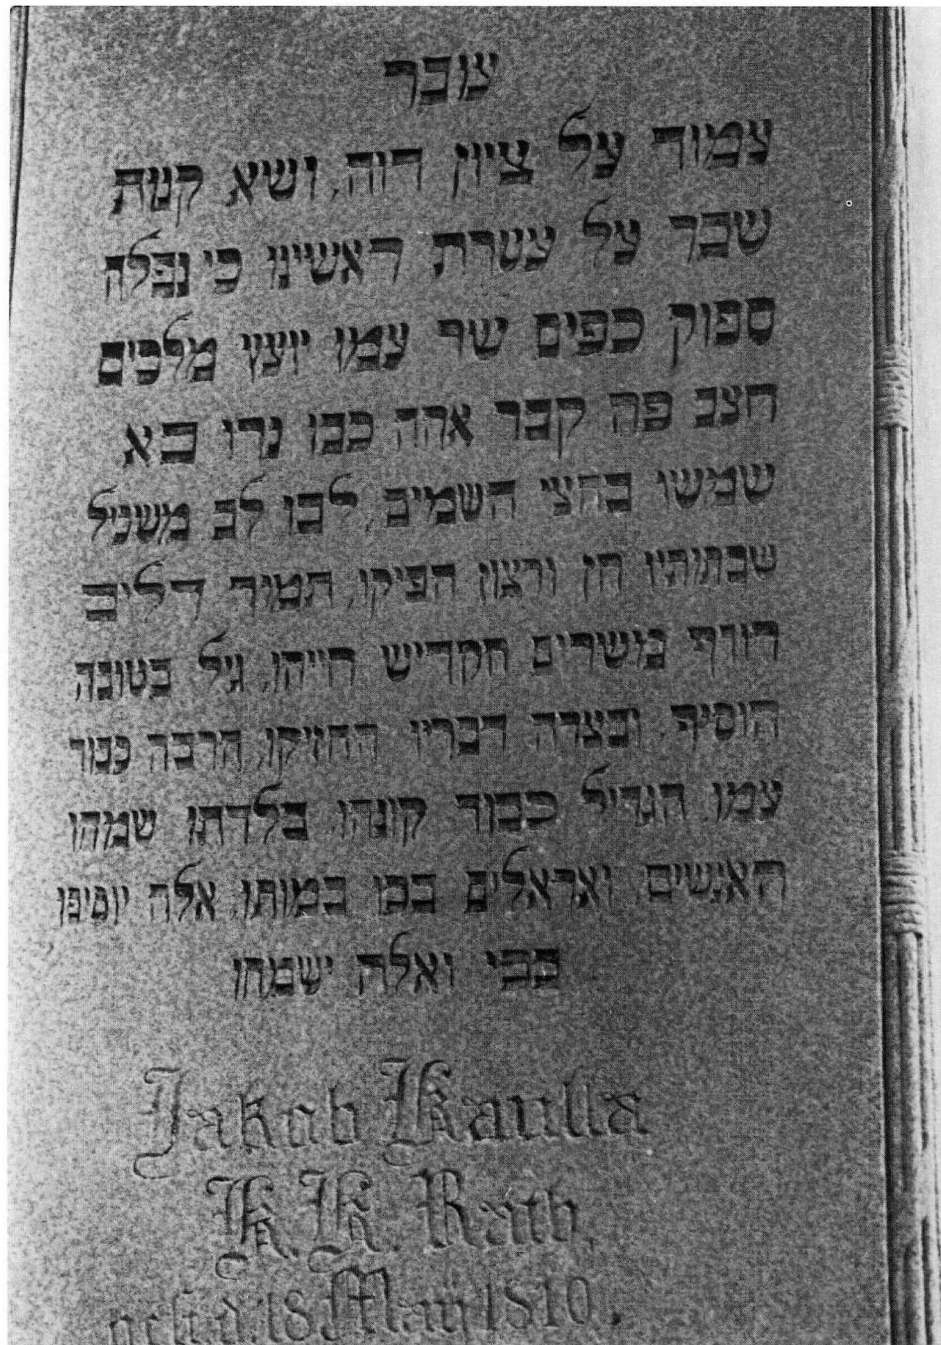 עובר
עמוד על ציון הזה, ושא קנות
שבר על עטרת ראשינו כי נפלה
ספוק כפים שר עמו יועץ מלכים
חצב פה קבר אהה כבו נרו בא
שמשו בחצי השמים, לבו לב משכיל
שבתותיו חן ורצון הפיקו, תמיד דלים
רודף משרים הקדיש הייהו, גיל בטובה
הוסיף, ובצרה דבריו החזיקו, הרבה כבוד
עמו, הגדיל כבוד קונהו, בלדתו שמחו
האנשים, ואראלים בכו במותו, אלה יוסיפו
בכי ואלה ישמחו
Jakob Kaulla
K. K. Rath,
gest. d. 18 May 1810.